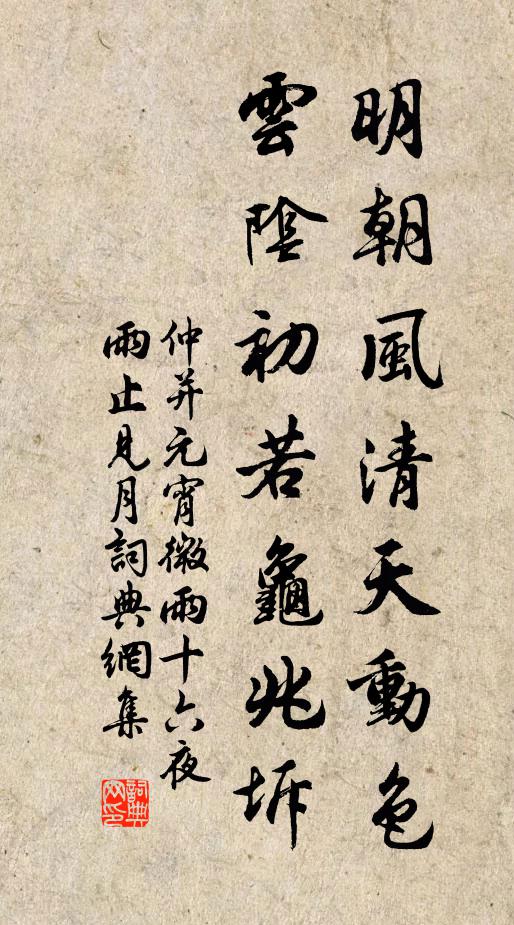 明朝風清天動色
雲陰初若龜兆坼
仲并元宵微雨十六夜
雨止見月詞典網集
詞典網印